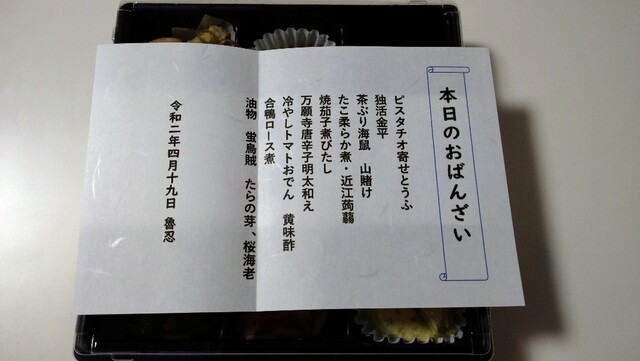 本日のおばんざい
ピスタチオ寄せとうふ
独活金平
茶ぶり海鼠　山賭け
たこ柔らか煮・近江蒟蒻
焼茄子煮びたし
万願寺唐辛子明太和え
冷やしトマトおでん　黄味酢
合鴨ロース煮
油物　蛍烏賊　たらの芽、桜海老
令和二年四月十九日　魯忍